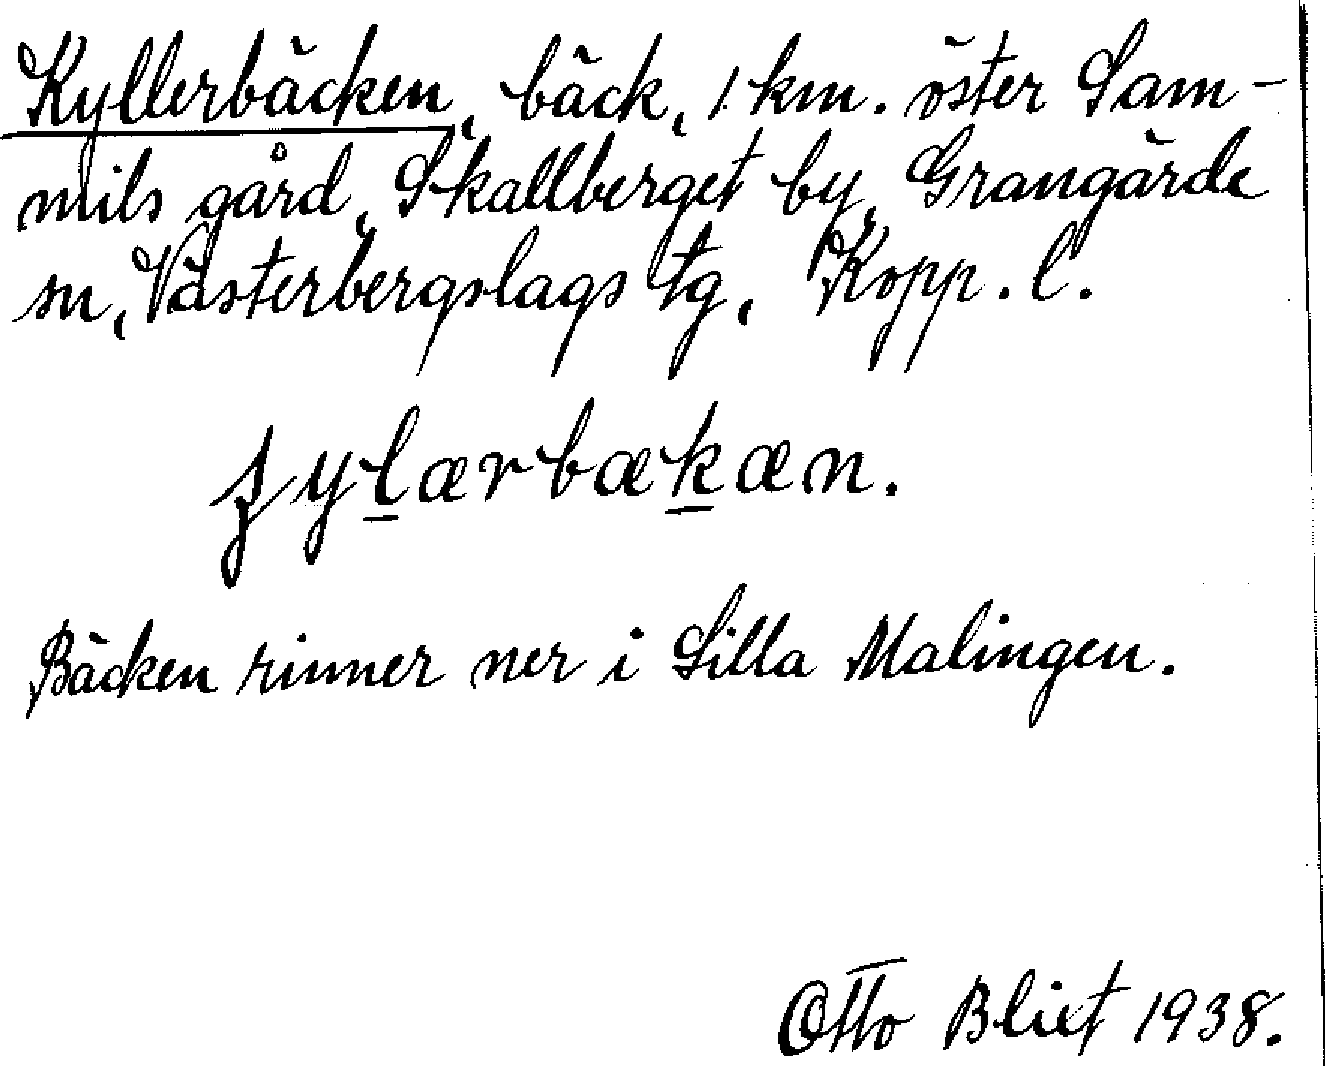 Kyllerbäcken, bäck, 1 km. öster Sam-
mils gård, Skallberget by, Grangärde
sn, Västerbergslags tg, Kopp. l.
ʒyl̲ærbæk̲æn.
Bäcken rinner ner i Lilla Malingen.
Otto Blixt 1938.